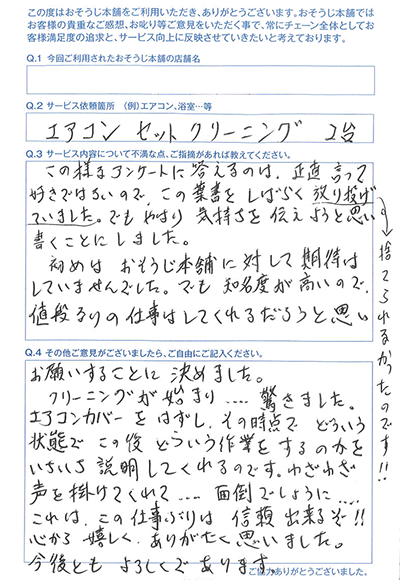 この度はおそうじ本舗をご利用いただき、ありがとうございます。おそうじ本舗では
お客様の貴重なご感想、お叱り等ご意見をいただく事で、常にチェーン全体としてお
客様満足度の追求と、サービス向上に反映させていきたいと考えております。
Q.1 今回ご利用されたおそうじ本舗の店舗名
Q.2 サービス依頼箇所 (例)エアコン、浴室…等
エアコン セットクリーニング 2台
Q.3 サービス内容について不満な点、ご指摘があれば教えてください。
この様なアンケートに答えるのは、正直言って
好きではないので、この葉書をしばらく放り投げ
ていました。でもやはり気持ちを伝えようと思い
書くことにしました。
初めはおそうじ本舗に対して期待は
していませんでした。でも知名度が高いので、
値段なりの仕事はしてくれるだろうと思い
→捨てられなかったのです!!
Q.4 その他ご意見がございましたら、ご自由にご記入ください。
お願いすることに決めました。
クリーニングが始まり‥‥驚きました。
エアコンカバーをはずし、その時点でどういう
状態でこの後どういう作業をするのかを
いちいち説明してくれるのです。わざわざ
声を掛けてくれて‥‥面倒でしょうに‥‥
これは、この仕事ぶりは信頼出来るぞ!!
心から嬉しく、ありがたく思いました。
今後ともよろしくであります。
ご協力ありがとうございました。